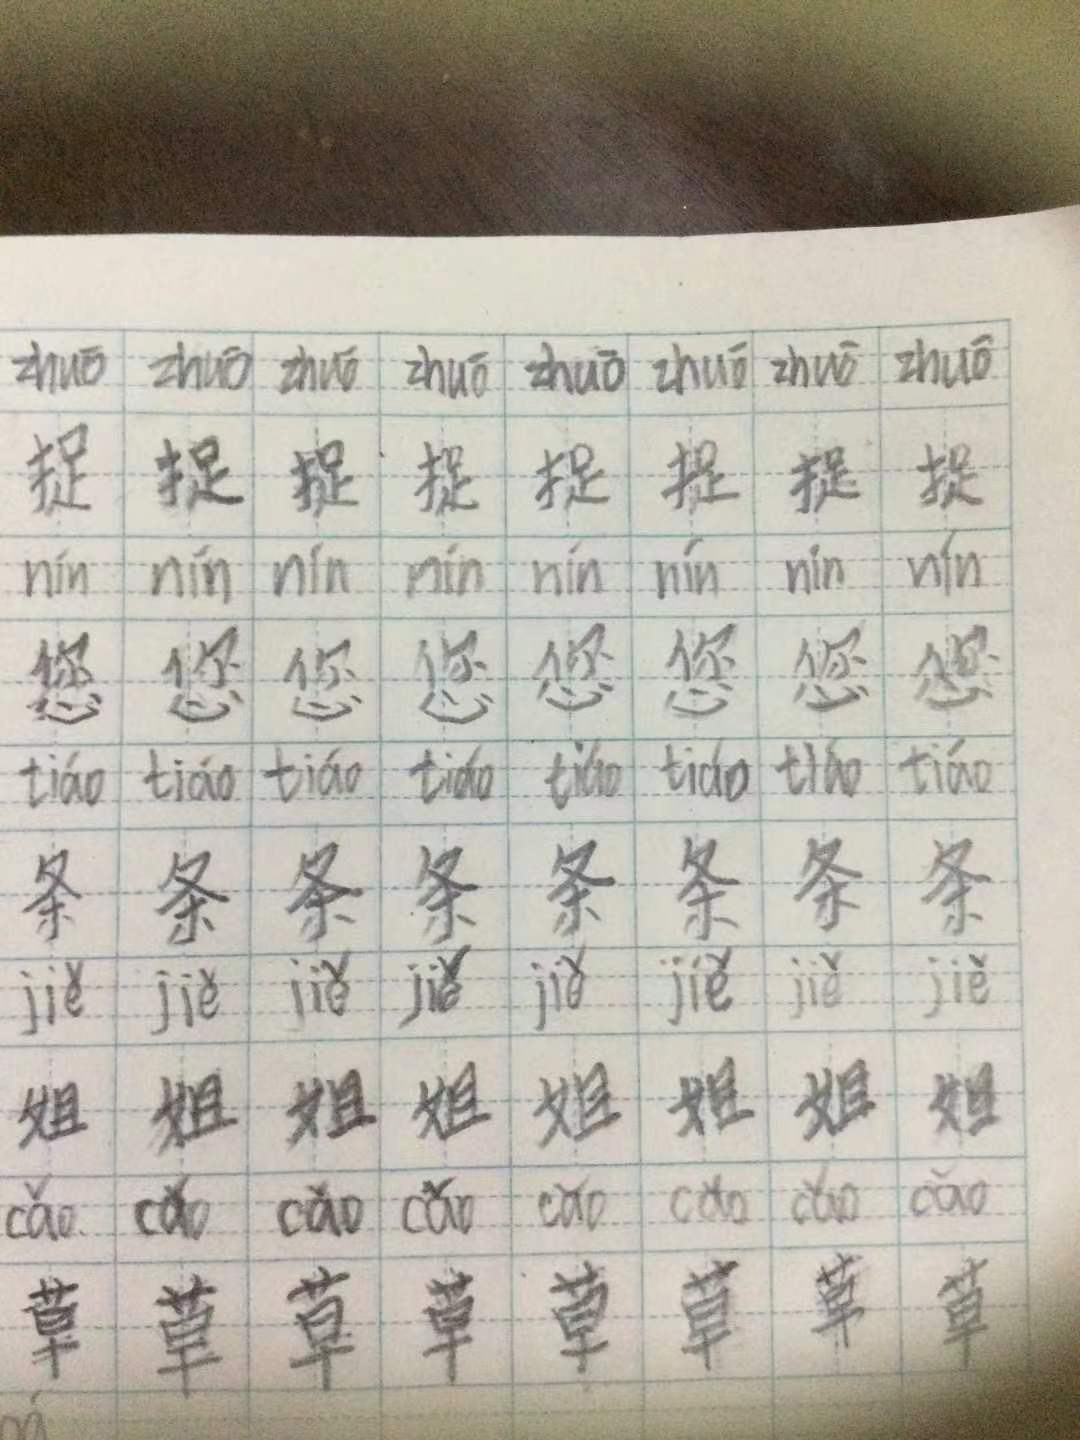 zhuō zhuō zhuō zhuō zhuō zhuō zhuō zhuō
捉 捉 捉 捉 捉 捉 捉 捉
nín nín nín nín nín nín nín nín
您 您 您 您 您 您 您 您
tiáo tiáo tiáo tiáo tiáo tiáo tiáo tiáo
条 条 条 条 条 条 条 条
jiě jiě jiě jiě jiě jiě jiě jiě
姐 姐 姐 姐 姐 姐 姐 姐
cǎo cǎo cǎo cǎo cǎo cǎo cǎo cǎo
草 草 草 草 草 草 草 草